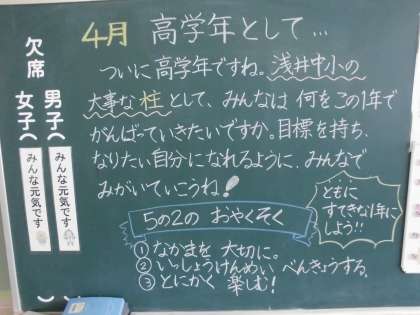 4月 高学年として…
ついに高学年ですね。浅井中小の
大事な柱として、みんなは何をこの1年で
がんばっていきたいですか。目標を持ち、
なりたい自分になれるように、みんなで
みがいていこうね!
ともに
すてきな1年に
しよう!!
5の2の おやくそく
① なかまを 大切に。
② いっしょうけんめい べんきょうする。
③ とにかく 楽しむ!
欠席
男子( みんな元気です
女子( みんな元気です )